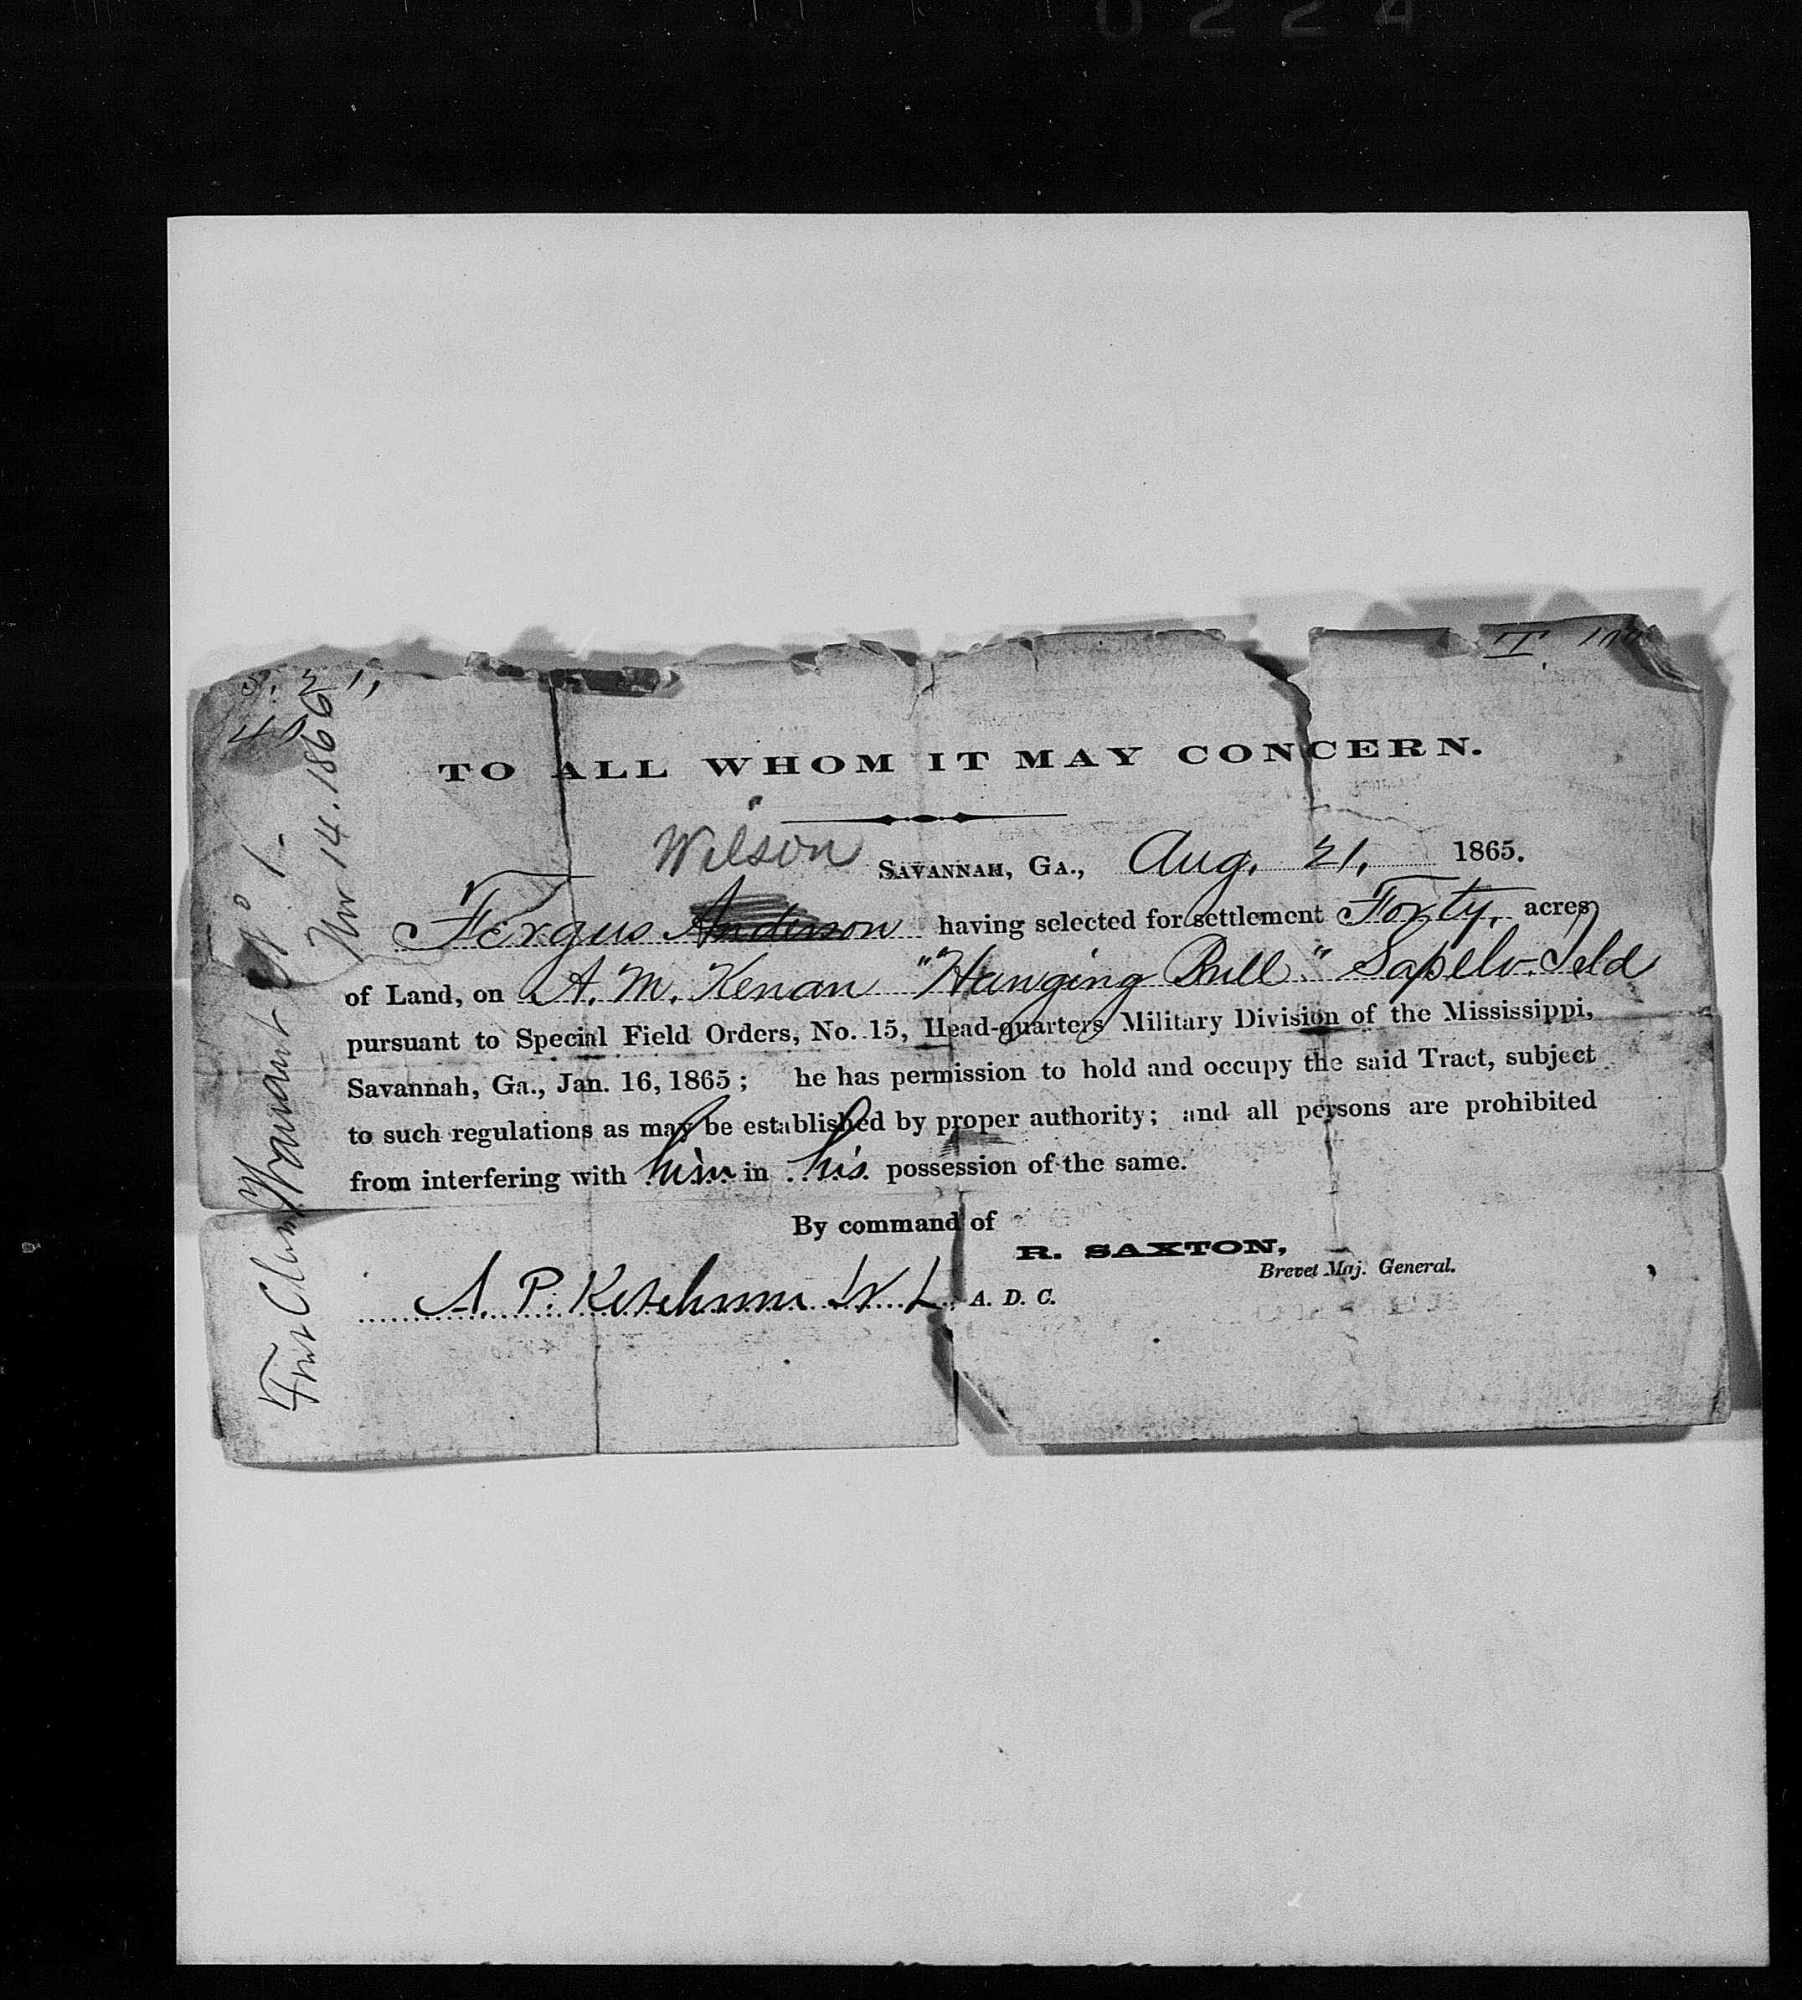 0224
S. 21,
40
T. 107
TO ALL WHOM IT MAY CONCERN.
Wilson
SAVANNAH, GA., Aug. 21, 1865.
Fergus Anderson having selected for settlement Forty, acres
of Land, on A. M. Kenan "Hanging Bull" Sapelo Isld
pursuant to Special Field Orders, No. 15, Head-quarters Military Division of the Mississippi,
Savannah, Ga., Jan. 16, 1865; he has permission to hold and occupy the said Tract, subject
to such regulations as may be established by proper authority; and all persons are prohibited
from interfering with him in his possession of the same.
By command of
R. SAXTON,
Brevet Maj. General.
A. P. Ketchum A. D. C.
Warrant No 1.
14. 1866